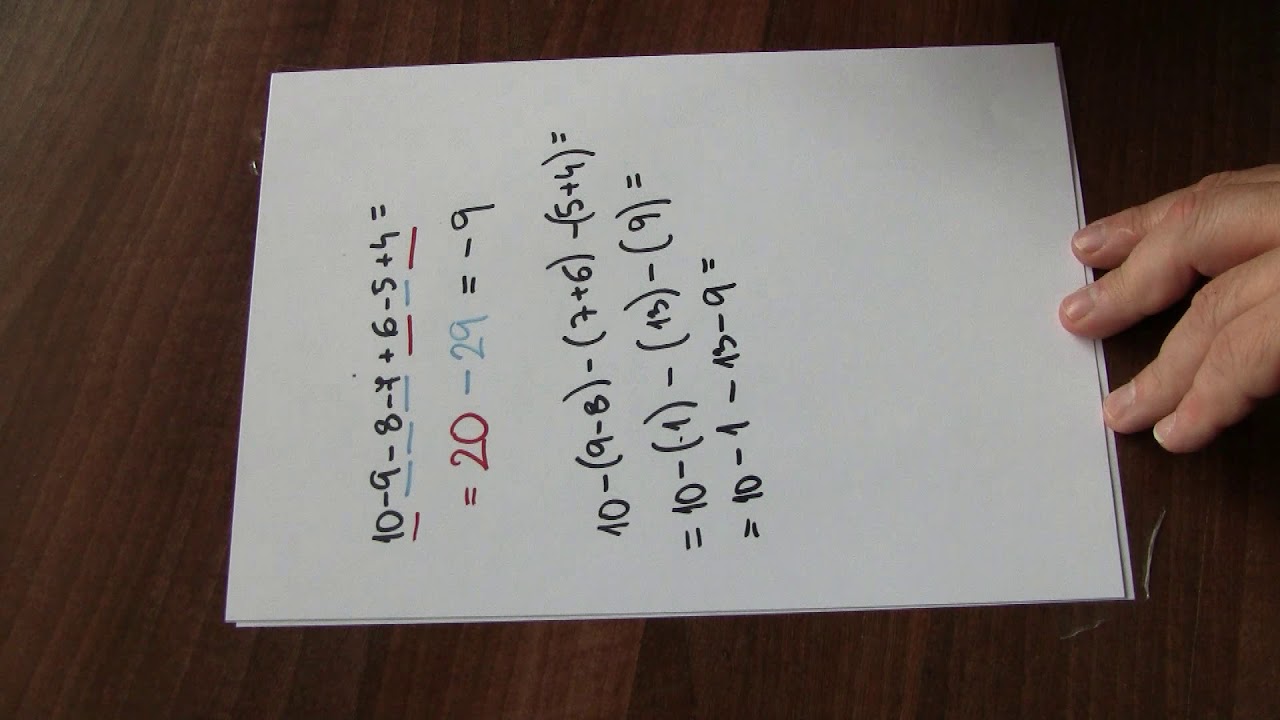 10-9-8-7+6-5+4=
= 20 - 29 = -9
10-(9-8)-(7+6)-(5+4)=
= 10-(1) - (13)-(9) =
= 10-1 - 13-9 =